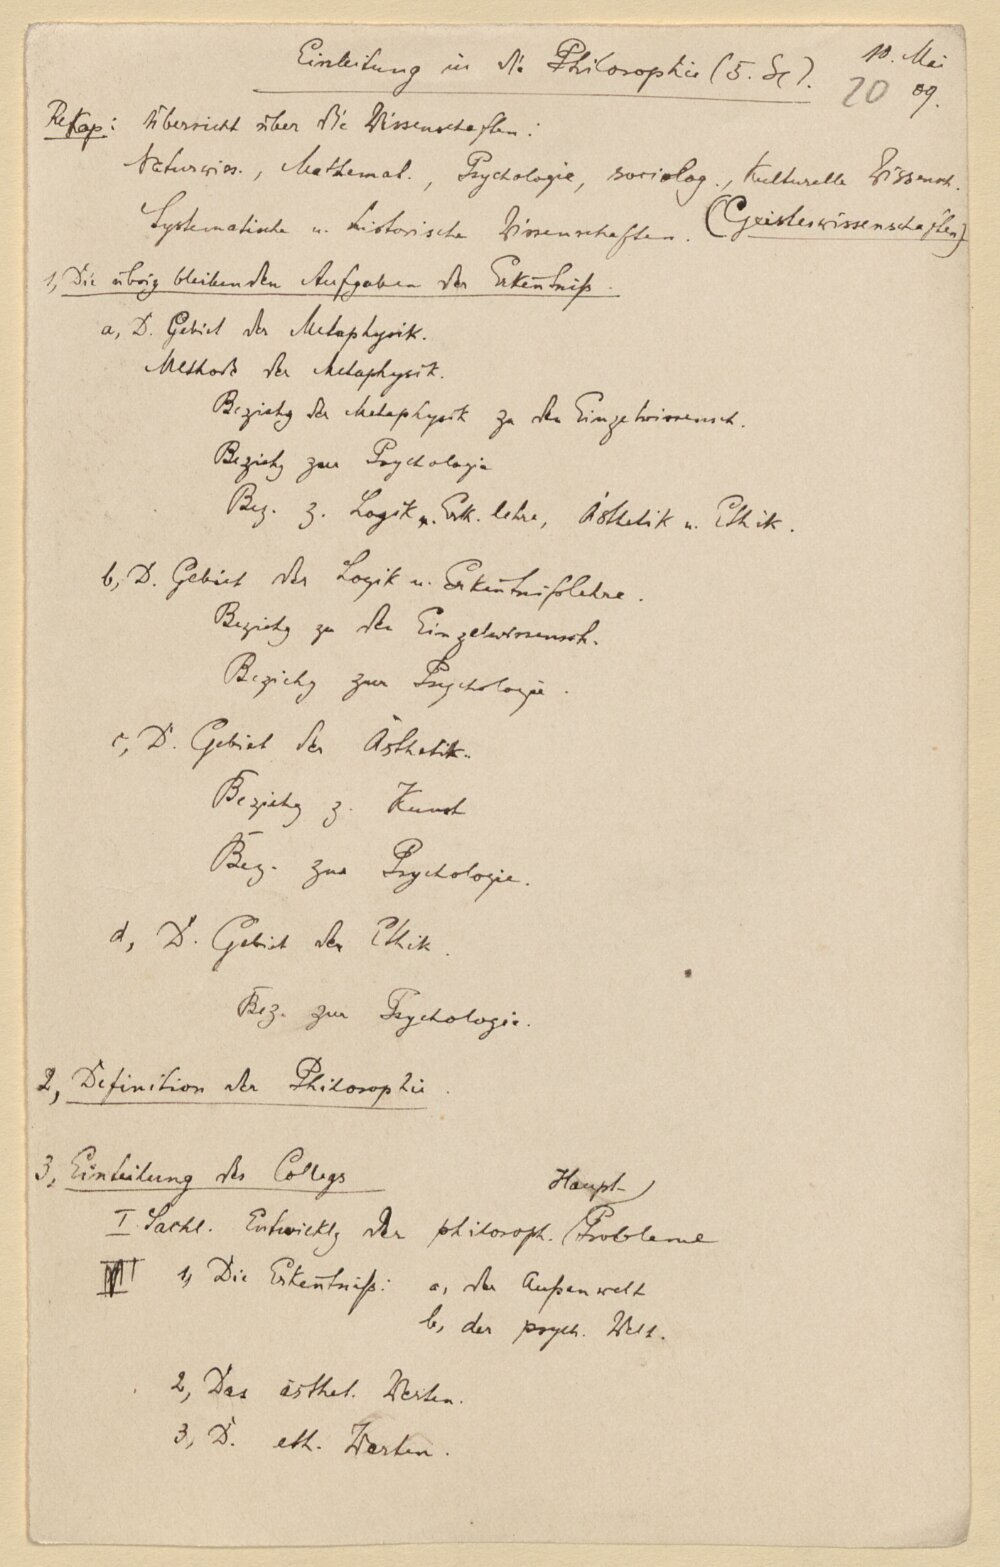 Einleitung in die Philosophie (5. St). 10. Mai
20 09.
Rekap: Übersicht über die Wissenschaften:
Naturwiss., Mathemat., Psychologie, sociolog., Kulturelle Wissensch.
Systematische u. historische Wissenschaften. (Geisteswissenschaften)
1, Die übrig bleibenden Aufgaben der Erkentniß.
a, D. Gebiet der Metaphysik.
Methode der Metaphysik.
Beziehg der Metaphysik zu den Einzelwissensch.
Beziehg zur Psychologie
Bez. z. Logik u. Erk. lehre, Ästhetik u. Ethik.
b, D. Gebiet der Logik u. Erkentnißlehre.
Beziehg zu den Einzelwissensch.
Beziehg zur Psychologie.
c, D. Gebiet der Ästhetik.
Beziehg z. Kunst
Bez. zur Psychologie.
d, D. Gebiet der Ethik.
Bez. zur Psychologie.
2, Definition der Philosophie.
3, Einteilung des Collegs
Haupt-
I. Sachl. Entwicklg der philosoph. Probleme
1, Die Erkentniß: a, der Außenwelt
b, der psych. Welt.
2, Das ästhet. Werten.
3, D. eth. Werten.